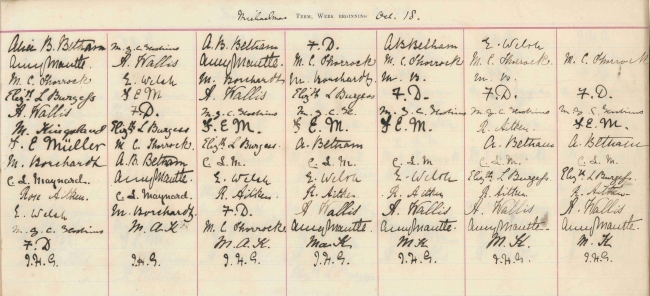 Michaelmas TERM, WEEK BEGINNING Oct. 18.
Alice B. Beltram
Amy Mantle.
M. C. Thorrock
Elizth L Burgess
A Wallis
M. Kingsland
F. E Müller
M. Borchardt
C. I. Maynard.
Rose Aitken.
E. Welch
M. G. C.
F. D
I. H. G.
M. G. C.
A. Wallis
E. Welch
F E M
F. D.
Elizth L Burgess
M. C. Thorrock
A. B. Beltram
Amy Mantle.
C. I. Maynard.
M. Borchardt
M. A. K
I. H. G.
A. B. Beltram
Amy Mantle.
M. Borchardt
A Wallis
M. G. C.
F. E. M.
Elizth L Burgess.
C. I. M.
E. Welch
R. Aitken
F. D
M. C Thorrocke
M. A. K.
I. H. G.
F. D.
M. C Thorrock
M. Borchardt.
Elizth L Burgess
M. G. C.
F. E. M.
A. Beltram
C I M.
E. Welch
R. Aitken
A Wallis
Amy Mantle.
I. H. G.
A B Beltram
M. C Thorrock
M. B.
F. D.
M. G. C
F. E. M.
C I. M
E. Welch
R. Aitken
A. Wallis
Amy Mantle.
M K
I. H. G.
E. Welch
M. C Thorrock
M. B.
F. D.
R. Aitken
A. Beltram
C I. M.
Elizth L Burgess.
R. Aitken
A Wallis
Amy Mantle.
M. K.
I. H. G.
M. C. Thorrock
F. D.
M. G. C
F. E. M.
A. Beltram
C. I. M.
Elizth L Burgess.
R. Aitken
A. Wallis
Amy Mantle.
M. K
I. H. G.